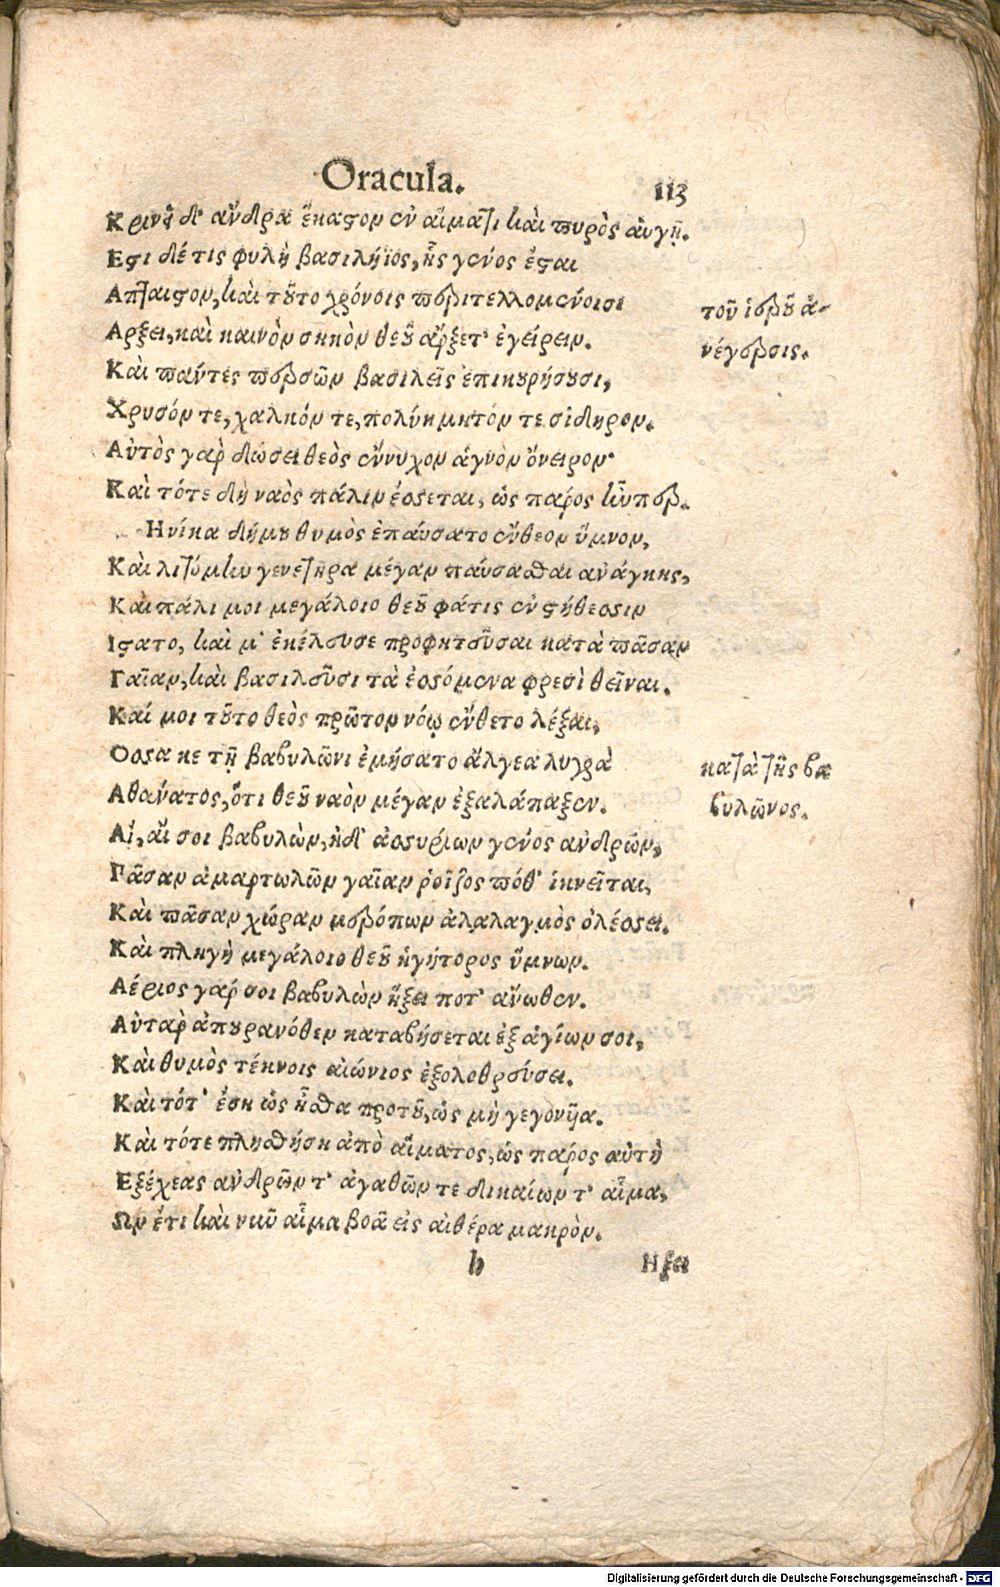 Oracula. 113
Κρινεῖ δ' ἄνδρα ἕκαστον ἐν αἵματι καὶ πυρὸς αὐγῇ.
Εστι δέ τις φυλὴ βασιλήϊος, ἧς γένος ἔσται
Απταιστον, καὶ τοῦτο χρόνοις περιτελλομένοισι
τοῦ ἱεροῦ ἀ-
Αρξει, καὶ καινὸν σηκὸν θεοῦ ἄρξετ' ἐγείρειν.
νέγερσις.
Καὶ πάντες περσῶν βασιλεῖς ἐπικουρήσουσι,
Χρυσόν τε, χαλκόν τε, πολύκμητόν τε σίδηρον.
Αὐτὸς γὰρ δώσει θεὸς ἔννυχον ἁγνὸν ὄνειρον·
Καὶ τότε δὴ ναὸς πάλιν ἔσσεται, ὡς πάρος ἦν περ.
Ηνίκα δή μου θυμὸς ἐπαύσατο ἔνθεον ὕμνον,
Καὶ λιτόμην γενετῆρα μέγαν παύσασθαι ἀνάγκης,
Καὶ πάλι μοι μεγάλοιο θεοῦ φάτις ἐν στήθεσσιν
Ιστατο, καὶ μ' ἐκέλευσε προφητεῦσαι κατὰ πᾶσαν
Γαῖαν, καὶ βασιλεῦσι τὰ ἐσσόμενα φρεσὶ θεῖναι.
Καί μοι τοῦτο θεὸς πρῶτον νόῳ ἔνθετο λέξαι,
Οσσα κε τῇ βαβυλῶνι ἐμήσατο ἄλγεα λυγρὰ
κατὰ τῆς βα
Αθάνατος, ὅτι θεοῦ ναὸν μέγαν ἐξαλάπαξεν.
βυλῶνος.
Αἴ, αἴ σοι βαβυλὼν, ἠδ' ἀσσυρίων γένος ἀνδρῶν,
Γᾶσαν ἁμαρτωλῶν γαῖαν ῥοῖζος πόθ' ἱκνεῖται,
Καὶ πᾶσαν χώραν μερόπων ἀλαλαγμὸς ὀλέσσει.
Καὶ πληγὴ μεγάλοιο θεοῦ ἡγήτορος ὕμνων.
Αέριος γάρ σοι βαβυλὼν ἥξει ποτ' ἄνωθεν.
Αὐτὰρ ἀπ' οὐρανόθεν καταβήσεται ἐξ ἁγίων σοι,
Καὶ θυμὸς τέκνοις αἰώνιος ἐξολοθρεύσει.
Καὶ τότ' ἔση ὡς ἦσθα προτοῦ, ὡς μὴ γεγονῦα.
Καὶ τότε πλησθήση ἀπὸ αἵματος, ὡς πάρος αὐτὴ
Εξέχεας ἀνδρῶν τ' ἀγαθῶν τε δικαίων τ' αἷμα,
Ων ἔτι καὶ νῦν αἷμα βοᾷ εἰς αἰθέρα μακρὸν.
h Ηξει
Digitalisierung gefördert durch die Deutsche Forschungsgemeinschaft - DFG